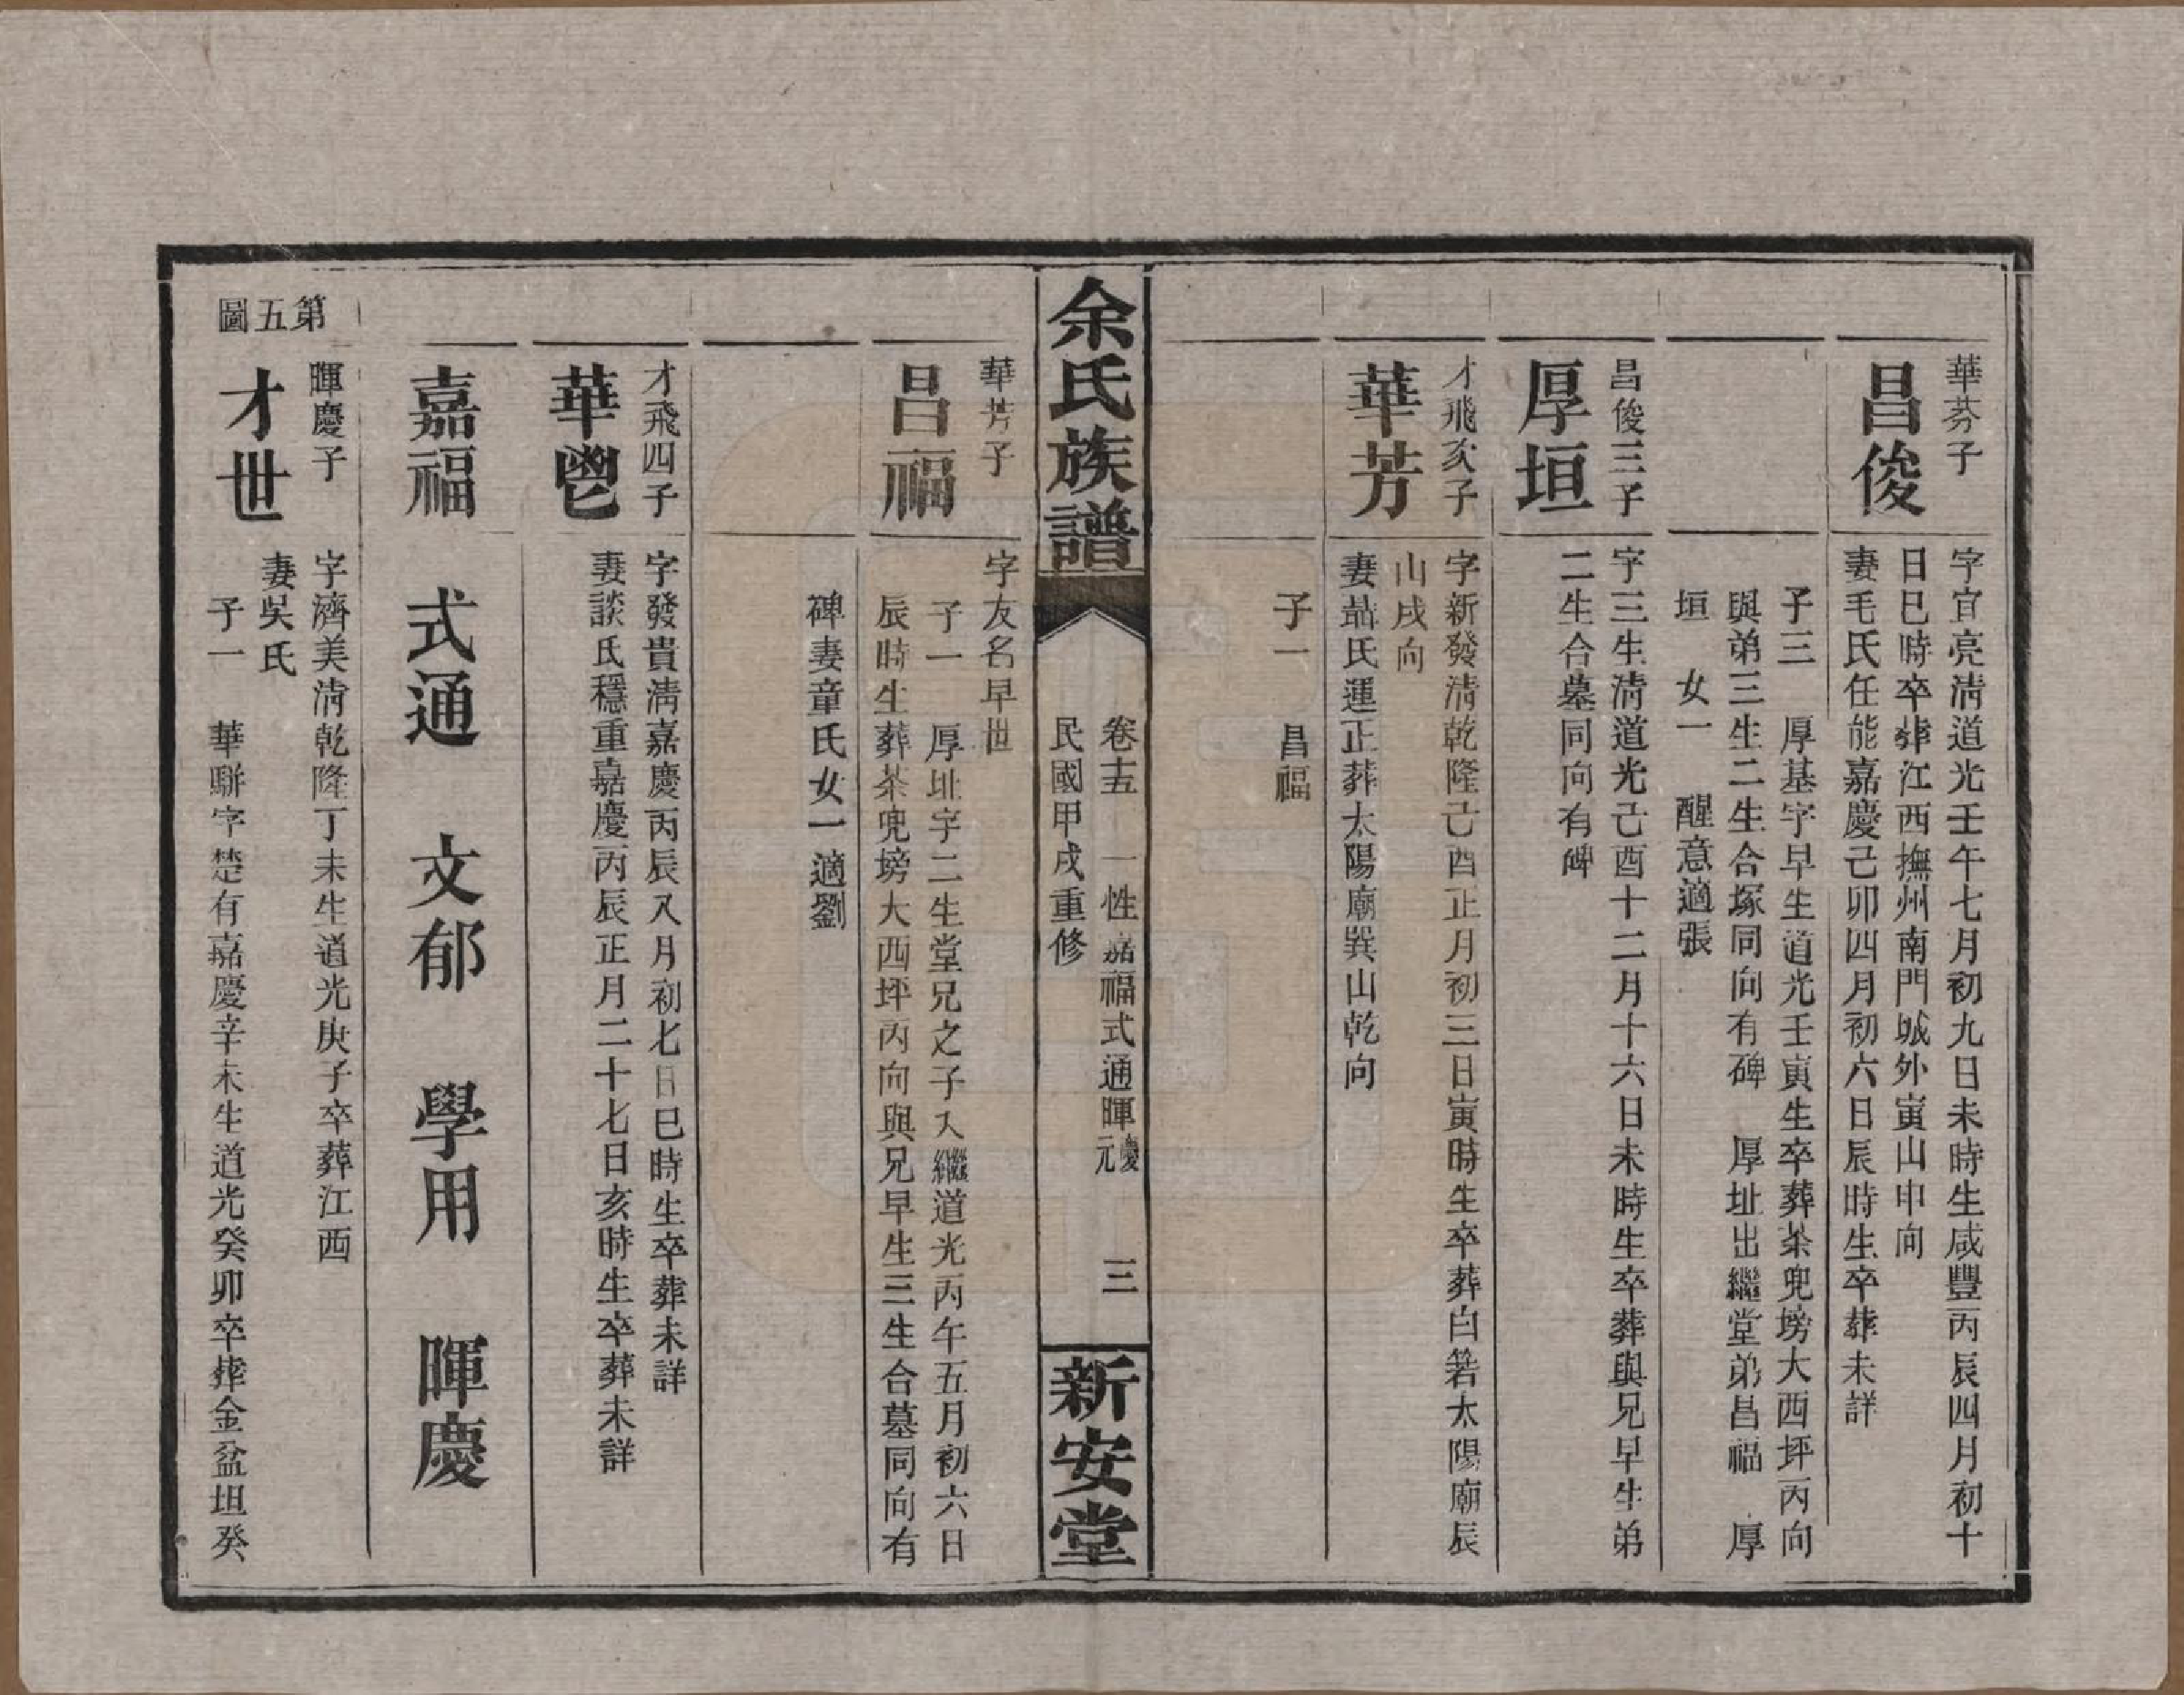 華芬子
昌俊
字宜亮淸道光壬午七月初九日未時生咸豐丙辰四月初十
日巳時卒葬江西撫州南門城外寅山申向
妻毛氏任能嘉慶己卯四月初六日辰時生卒葬未詳
子三　厚基字早生道光壬寅生卒葬茶兜塝大西坪丙向
與弟三生二生合塚同向有碑　厚址出繼堂弟昌福　厚
垣　女一　醒意適張
昌俊三子
厚垣
字三生淸道光己酉十二月十六日未時生卒葬與兄早生弟
二生合墓同向有碑
才飛次子
華芳
字新發淸乾隆己酉正月初三日寅時生卒葬白箬太陽廟辰
山戌向
妻聶氏運正葬太陽廟巽山乾向
子一　昌福
余氏族譜
卷十五　一性嘉福式通暉慶元　三
民國甲戌重修
新安堂
華芳子
昌福
字友名早世
子一　厚址字二生堂兄之子入繼道光丙午五月初六日
辰時生葬茶兜塝大西坪丙向與兄早生三生合墓同向有
碑妻童氏女一適劉
才飛四子
華鬯
字發貴淸嘉慶丙辰又月初七日巳時生卒葬未詳
妻談氏穩重嘉慶丙辰正月二十七日亥時生卒葬未詳
嘉福　式通　文郁　學用　暉慶
第五圖
暉慶子
才世
字濟美淸乾隆丁未生道光庚子卒葬江西
妻吳氏
子一　華駢字楚有嘉慶辛未生道光癸卯卒葬金盆坦癸